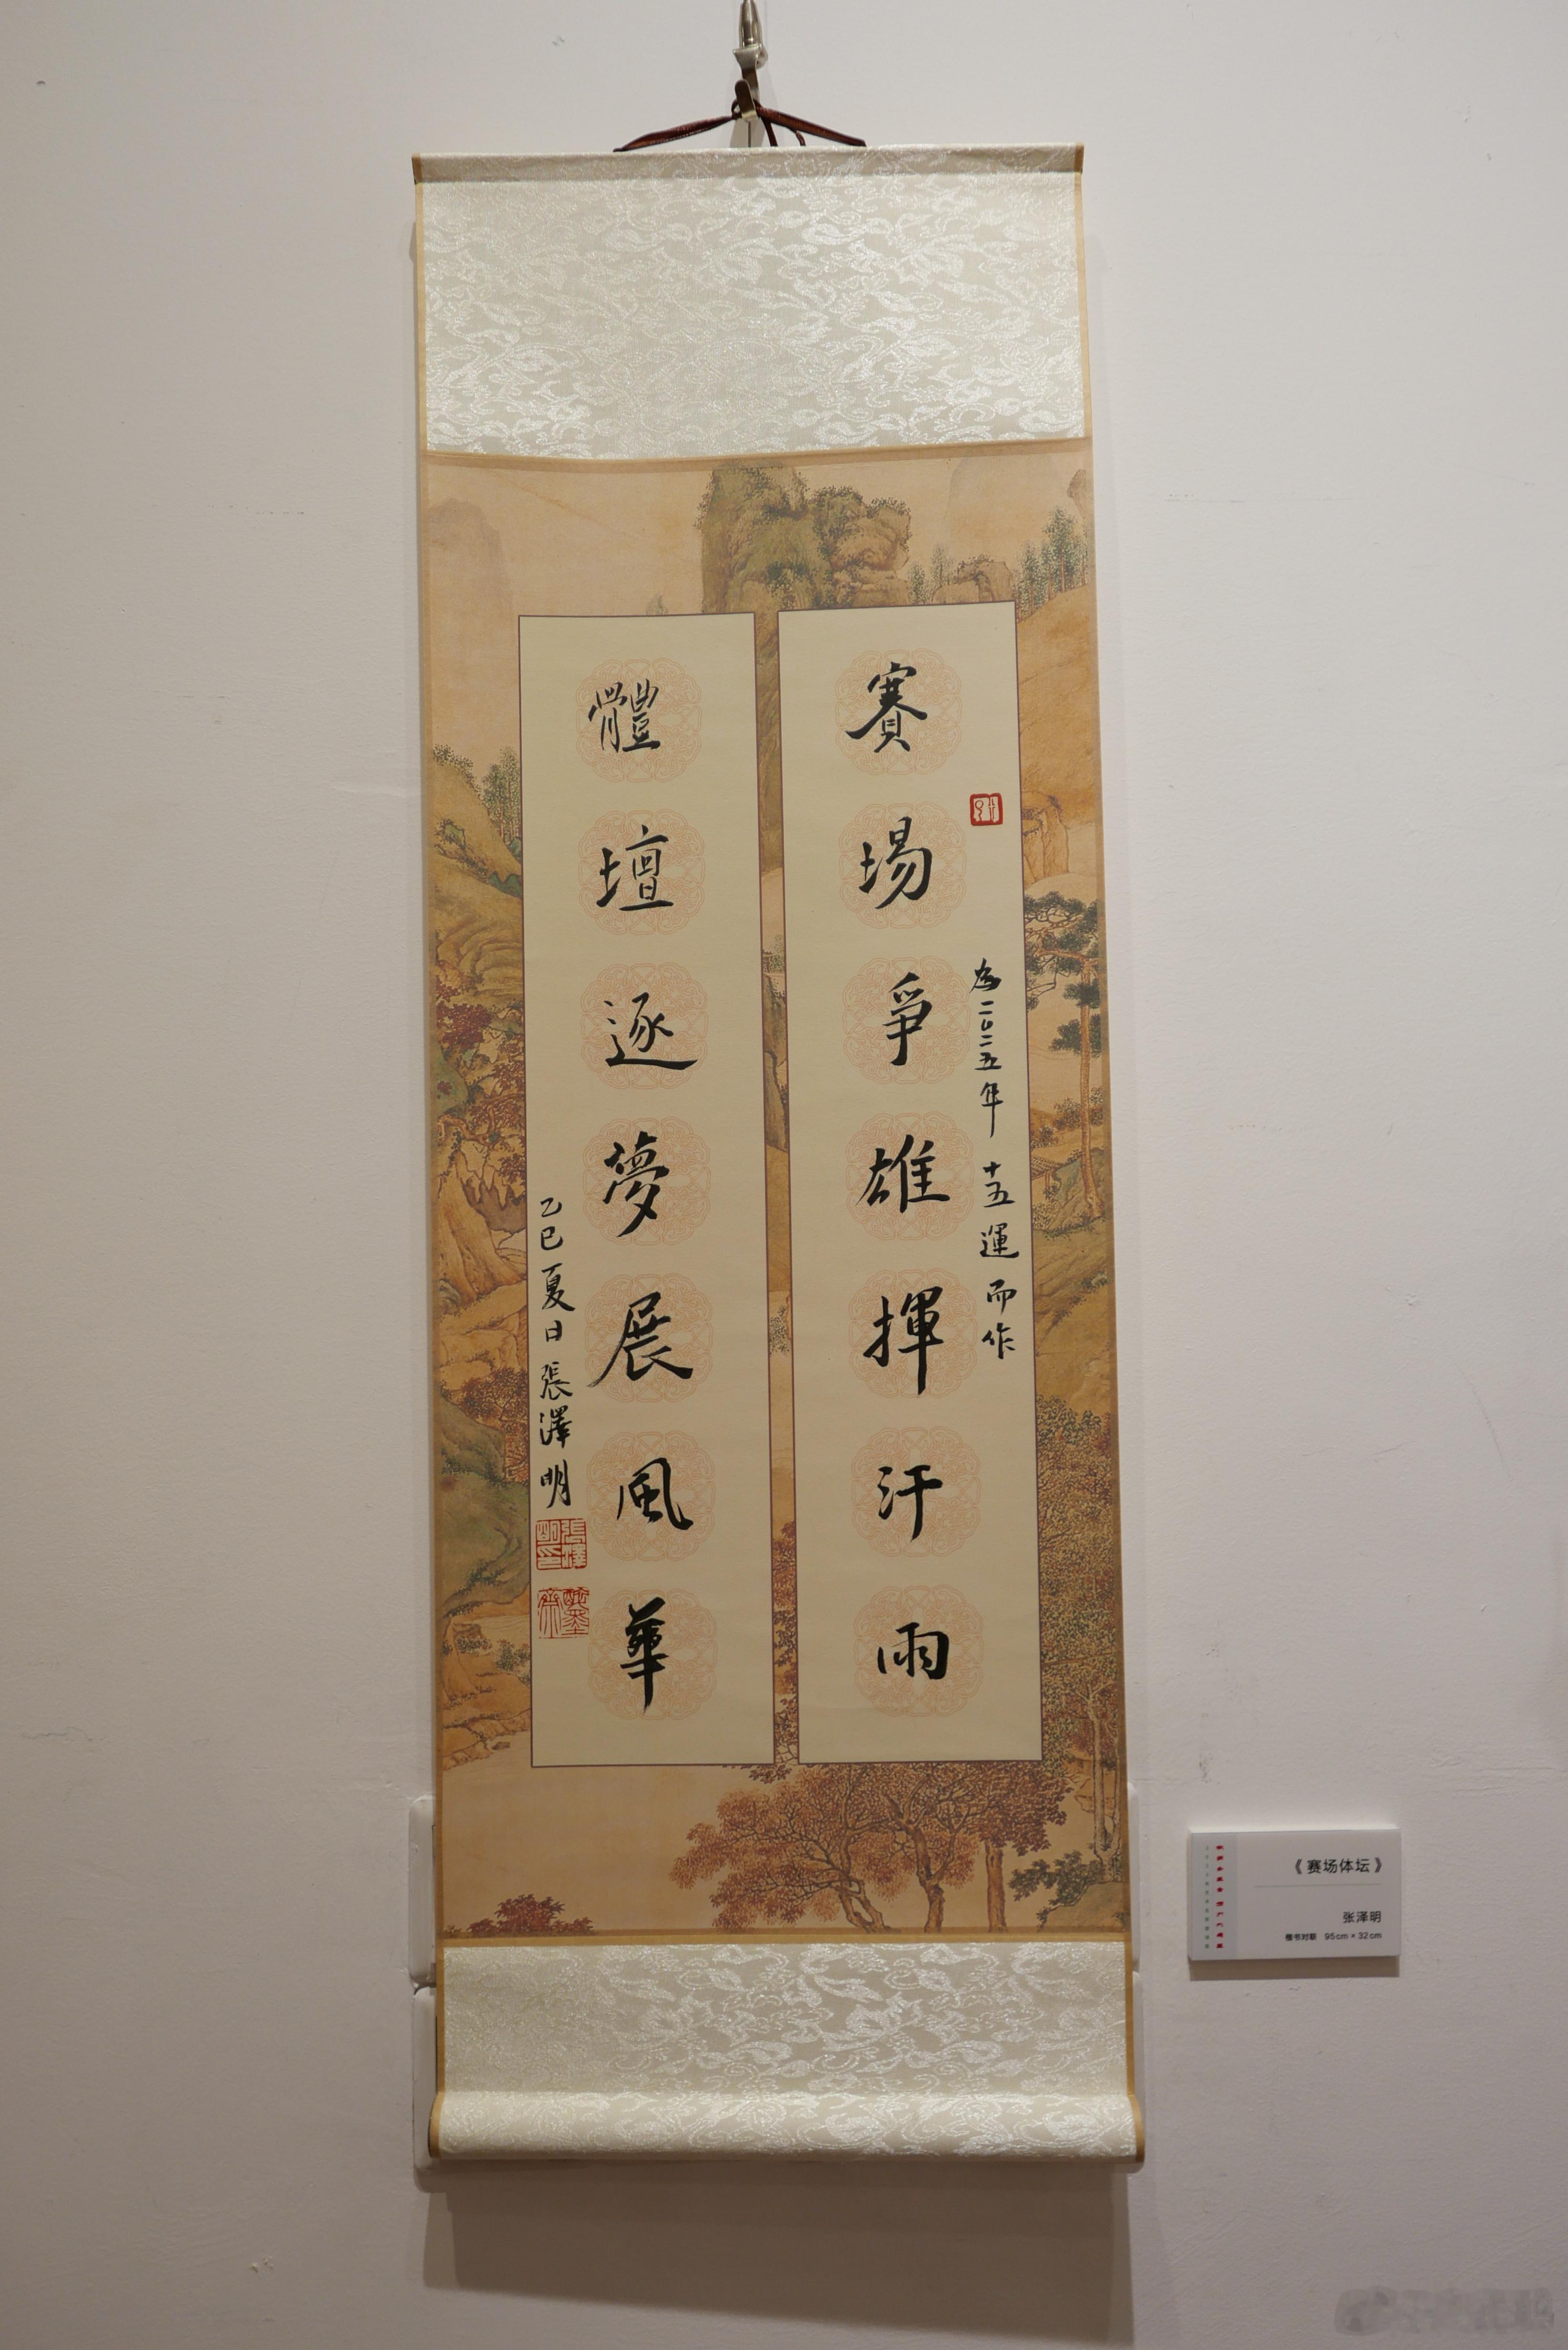 賽場爭雄揮汗雨
為二〇二五年 十五運而作
體壇逐夢展風華
乙巳夏日張澤明
張澤明印
醉墨齋
《赛场体坛》
张泽明
楷书对联 95cm×32cm